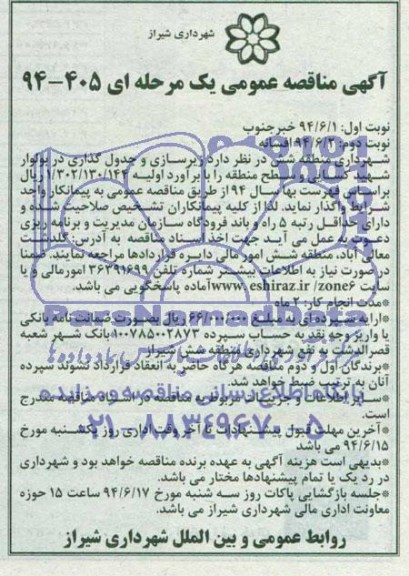 شهرداری شیراز
آگهی مناقصه عمومی یک مرحله ای ۴۰۵-۹۴
نوبت اول: ۹۴/۶/۱ خبرجنوب
نوبت دوم: ۹۴/۶/۲ افسانه
شهرداری منطقه شش در نظر دارد زیرسازی و جدول گذاری در بولوار
شهید سطح منطقه را با برآورد اولیه ۱/۳۰۲/۱۳۰/۱۴۴ ریال
براساس فهرست بهای سال ۹۴ از طریق مناقصه عمومی به پیمانکار واجد
شرایط واگذار نماید. لذا از کلیه پیمانکاران تشخیص صلاحیت شده و
دارای حداقل رتبه ۵ راه و باند فرودگاه سازمان مدیریت و برنامه ریزی
دعوت به عمل می آید جهت اخذ اسناد مناقصه به آدرس: گلدشت
معالی آباد، منطقه شش امور مالی دایره قراردادها مراجعه نمایند. ضمنا
در صورت نیاز به اطلاعات بیشتر شماره تلفن ۳۶۳۹۱۶۹۹ امور مالی و یا
سایت www.eshiraz.ir /zone۶ آماده پاسخگویی می باشد.
*مدت انجام کار: ۲ ماه
*ارایه سپرده ای به مبلغ ۶۶/۰۰۰/۰۰۰ ریال بصورت ضمانت نامه بانکی
یا واریز وجه نقد به حساب سپرده ۱۰۰۷۸۵۰۰۲۸۷۳ بانک شهر شعبه
قصرالدشت به نفع شهرداری منطقه شش شیراز
*برندگان اول و دوم مناقصه هرگاه حاضر به انعقاد قرارداد نشوند سپرده
آنان به ترتیب ضبط خواهد شد.
*سایر اطلاعات و جزییات مربوطه به مناقصه در اسناد مناقصه مندرج
است.
*آخرین مهلت قبول پیشنهادات تا آخر وقت اداری روز یکشنبه مورخ
۹۴/۶/۱۵ می باشد
*بدیهی است هزینه آگهی به عهده برنده مناقصه خواهد بود و شهرداری
در رد یک یا تمام پیشنهادها مختار می باشد.
*جلسه بازگشایی پاکات روز سه شنبه مورخ ۹۴/۶/۱۷ ساعت ۱۵ حوزه
معاونت اداری مالی شهرداری شیراز می باشد.
روابط عمومی و بین الملل شهرداری شیراز
پایگاه اطلاع رسانی مناقصه و مزایده
۰۲۱-۸۸۳۴۹۶۷۰-۵